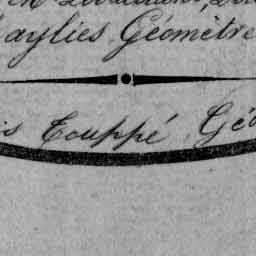 aylies Géomètre
is Touppé, Géo